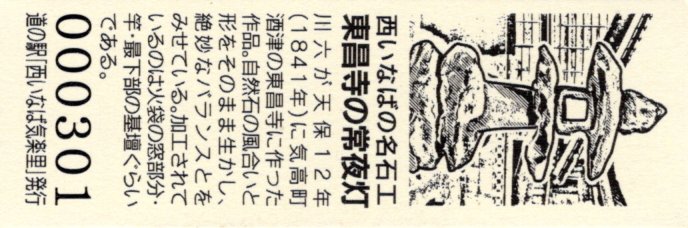 西いなばの名石工
東昌寺の常夜灯
川六が天保12年
(1841年)に気高町
酒津の東昌寺に作った
作品。自然石の風合いと
形をそのまま生かし、
絶妙なバランスとを
みせている。加工されて
いるのは火袋の窓部分・
竿・最下部の基壇ぐらい
である。
000301
道の駅「西いなば気楽里」発行